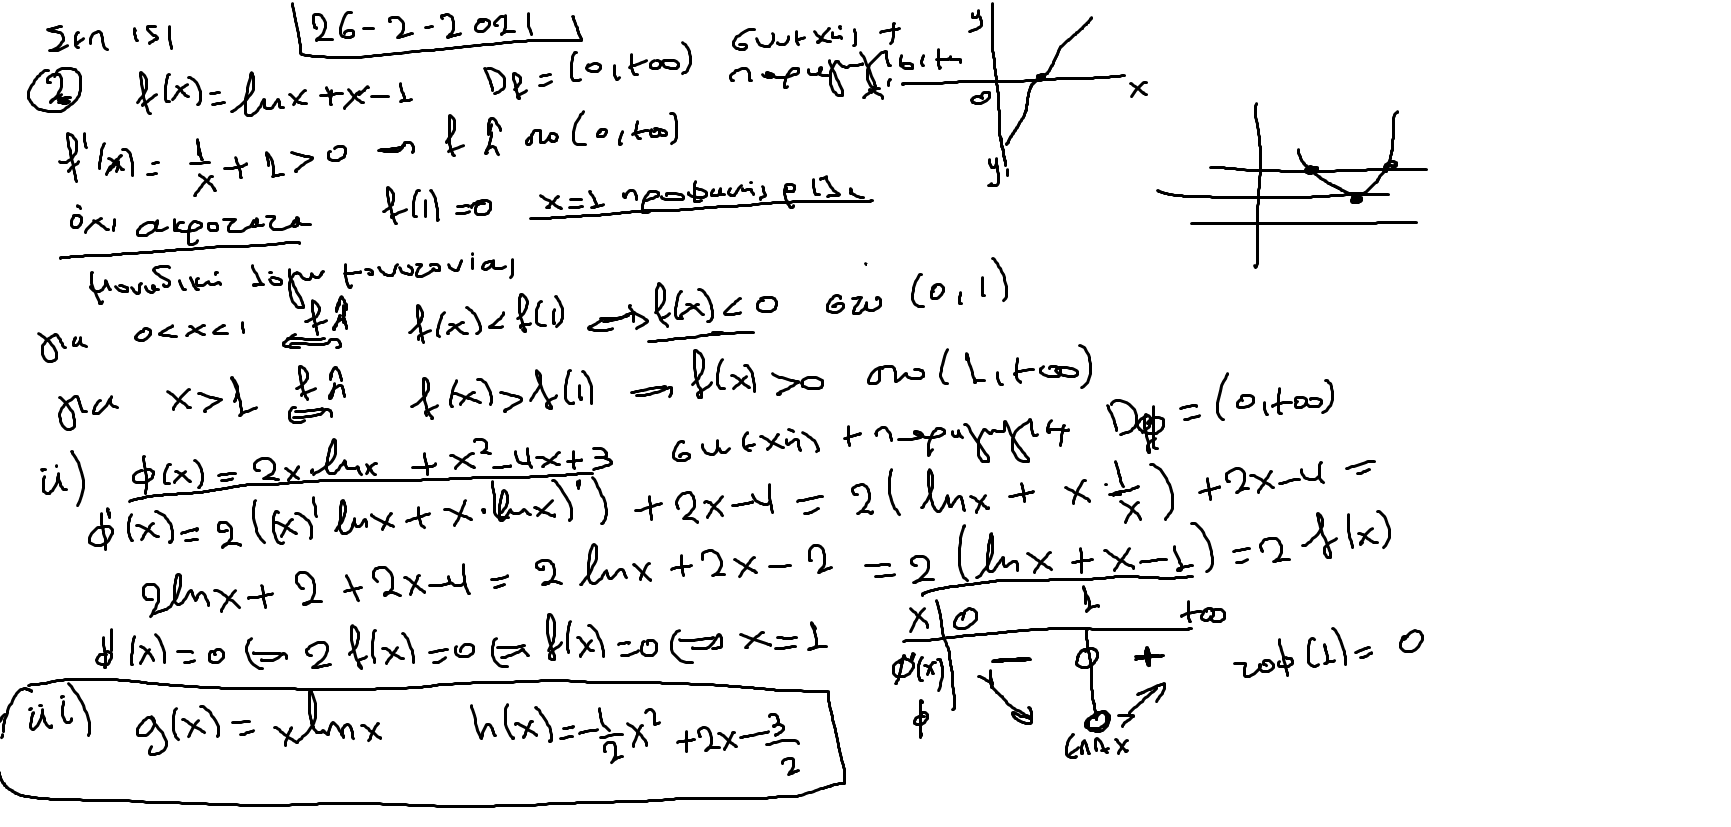 Σελ 151 26-2-2021
② f(x)=lnx+x-1 Df=(0,+∞) συνεχής + παραγ/μη
y x 0 y'
f'(x)= 1/x + 1>0 → f ↑ στο (0,+∞)
όχι ακρότατα f(1)=0 x=1 προφανής ρίζα
μοναδική λόγω μονοτονίας
για 0<x<1 ⇔ f↑ f(x)<f(1) ⇔ f(x)<0 στο (0,1)
για x>1 ⇔ f↑ f(x)>f(1) ⇒ f(x)>0 στο (1,+∞)
ii) φ(x)=2x·lnx+x²-4x+3 συνεχής + παραγ/μη Dφ=(0,+∞)
φ'(x)=2((x)' lnx+x·(lnx)')+2x-4=2(lnx+x·1/x)+2x-4=
2lnx+2+2x-4=2lnx+2x-2=2(lnx+x-1)=2f(x)
φ'(x)=0⇔2f(x)=0⇔f(x)=0⇔x=1
x 0 1 +∞
φ'(x) - 0 + το φ(1)=0
φ ελαχ
iii) g(x)=xlnx h(x)=-1/2x²+2x-3/2